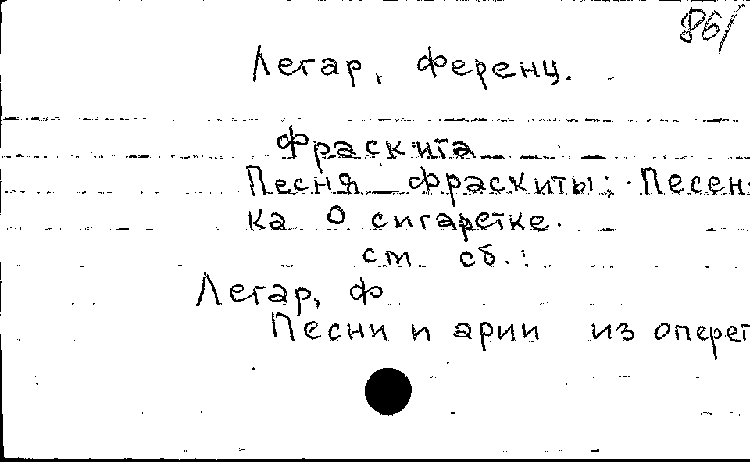 86/
Легар, Ференц.
Фраскита
Песня Фраскиты: Песен-
ка о сигаретке.
см сб.:
Легар, Ф
Песни и арии из оперет